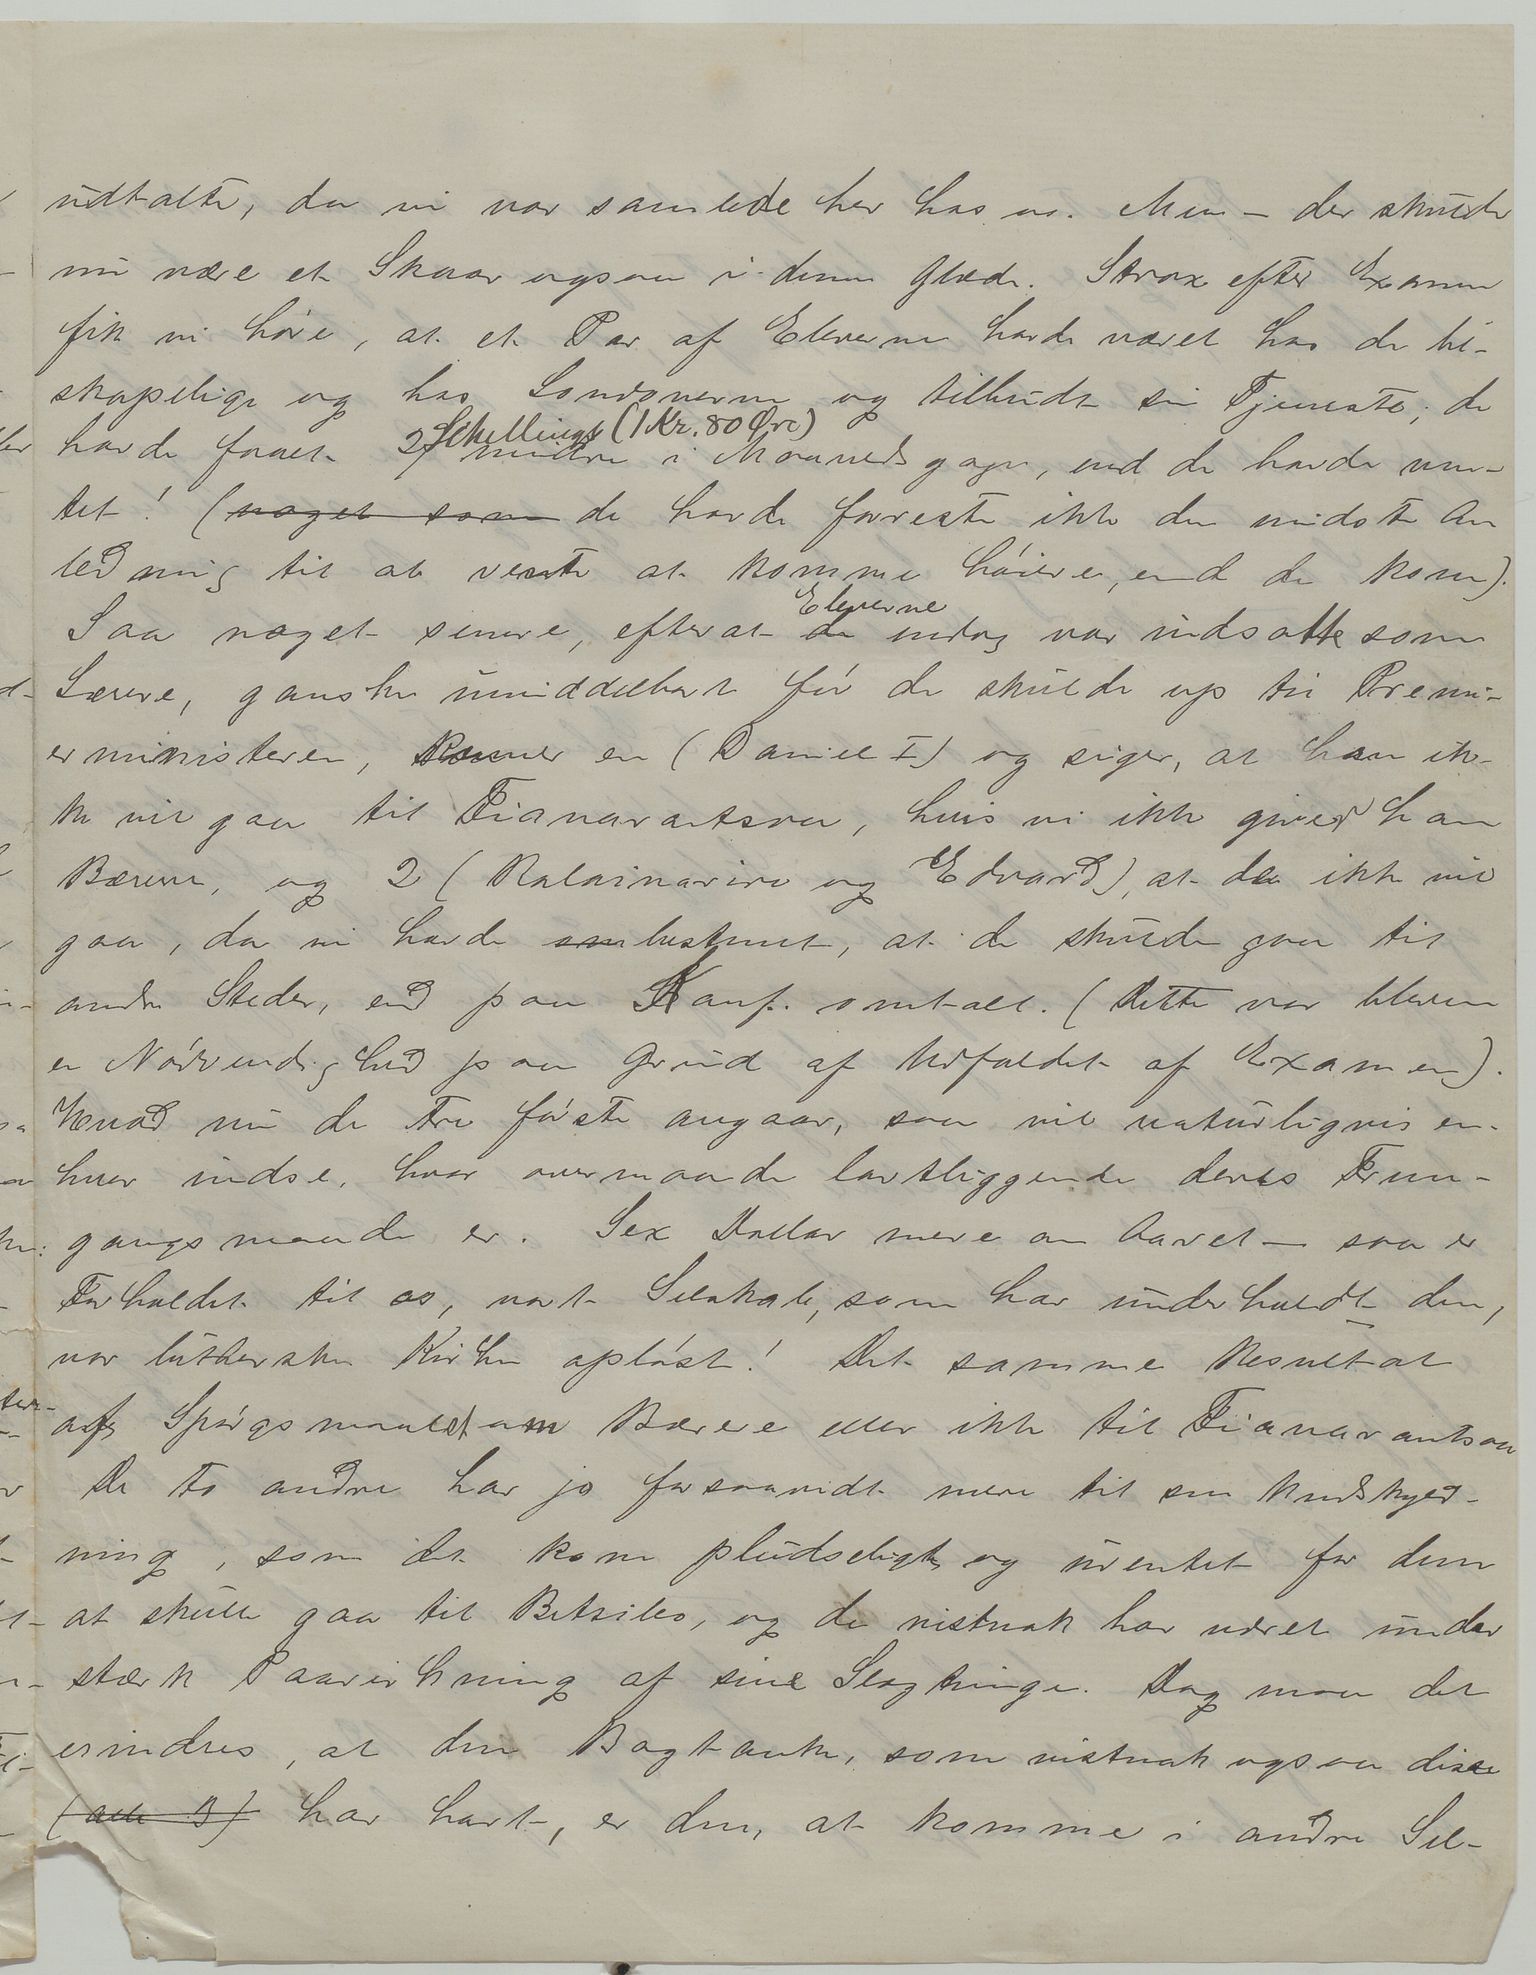 udtalte, da vi var samlede her hos os. Men – der skulde
nu være et Skaar ogsaa i denne Glæde. Strax efter Examen
fik vi høre, at et Par af Eleverne havde været hos de bi-
skopelige og hos Londonerne og tilbudt sin Tjeneste; de
havde faaet 2 Schillings (1 Kr. 80 Øre) mindre i Maanedsgage, end de havde ven-
tet! (noget som de havde forresten ikke den mindste An
ledning til at vente at komme høiere, end de kom).
Saa noget senere, efterat de Eleverne endog var indsatte som
Lærere, ganske umiddelbart før de skulde op til Premi-
erministeren, kommer en (Daniel I) og siger, at han ik-
ke vil gaa til Fianarantsoa, hvis vi ikke giver ham
Bærere, og 2 (Ralainarivo og Edvard), at de ikke vil
gaa, da vi havde bestemt, at de skulde gaa til
andre Steder, end paa Konf. omtalt. (Dette var bleven
en Nødvendighed paa Grund af Udfaldet af Examen).
Hvad nu de tre første angaar, saa vil naturligvis en-
hver indse, hvor overmaade lavtliggende deres Frem-
gangsmaade er. Sex Dollar mere om Aaret – saa er
Forholdet til os, vort Selskab, som har underholdt dem,
vor lutherske Kirke opløst! Det samme Resultat
af Spørgsmaalet om Bærere eller ikke til Fianarantsoa
De to andre har jo forsaavidt mere til sin Undskyld-
ning, som det kom pludseligt og uventet for dem
at skulle gaa til Betsileo, og de vistnok har været under
stærk Paavirkning af sine Slægtninge. Dog maa det
erindres, at den Bagtanke, som vistnok ogsaa disse
(alle 3) har havt, er den, at komme i andre Sel-